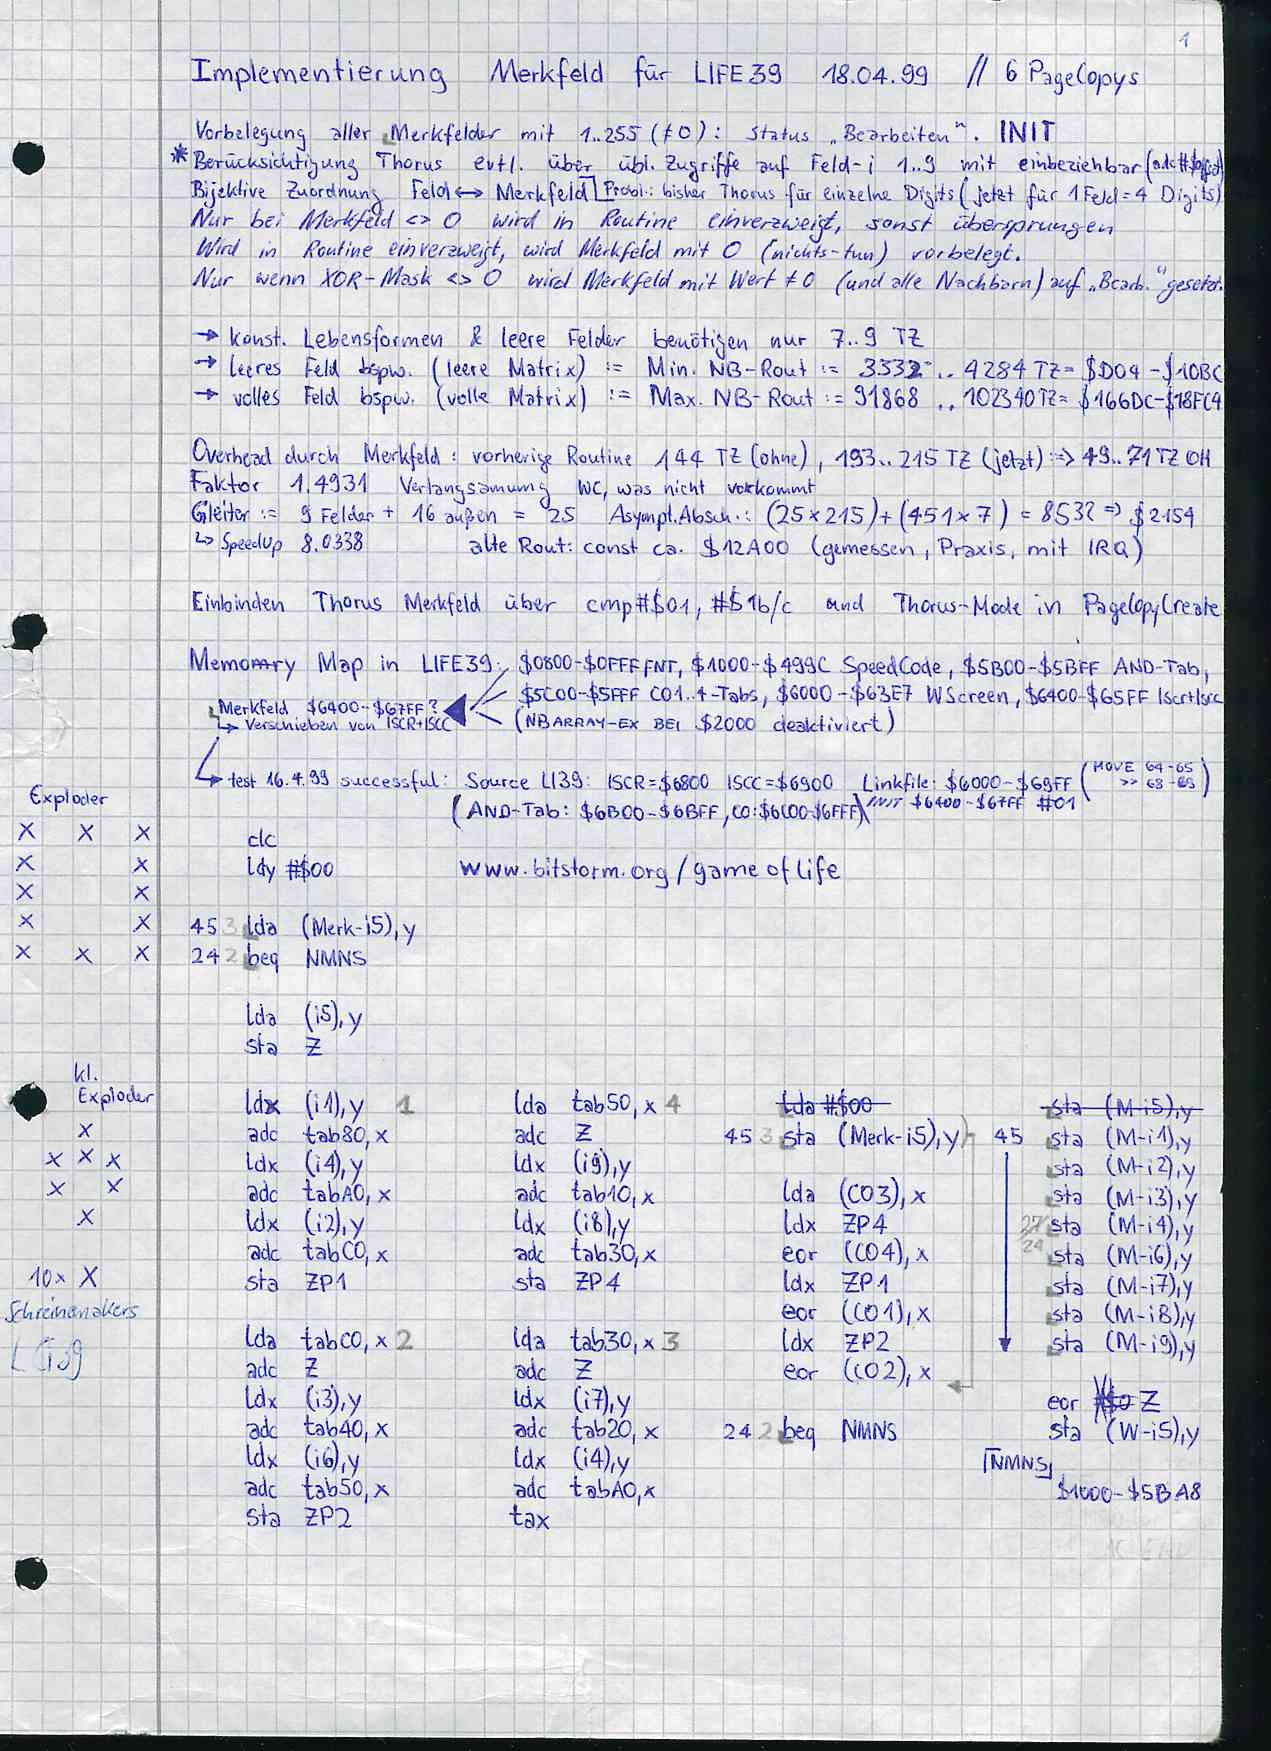 1
Implementierung Merkfeld für LIFE39 18.04.99 // 6 PageCopys
Vorbelegung aller Merkfelder mit 1..255 (≠0): Status „Bearbeiten“. INIT
* Berücksichtigung Thorus evtl. über übl. Zugriffe auf Feld-i 1..9 mit einbeziehbar
Bijektive Zuordnung Feld ↔ Merkfeld Probl.: bisher Thorus für einzelne Digits (jetzt für 1 Feld = 4 Digits)
Nur bei Merkfeld <> 0 wird in Routine einverzweigt, sonst übersprungen
Wird in Routine einverzweigt, wird Merkfeld mit 0 (nichts-tun) vorbelegt.
Nur wenn XOR-Mask <> 0 wird Merkfeld mit Wert ≠ 0 (und alle Nachbarn) auf „Bearb.“ gesetzt.
→ konst. Lebensformen & leere Felder benötigen nur 7..9 TZ
→ leeres Feld bspw. (leere Matrix) := Min. NB-Rout := 3332 .. 4284 TZ = $D04 - $10BC
→ volles Feld bspw. (volle Matrix) := Max. NB-Rout := 91868 .. 102340 TZ = $166DC-$18FC4
Overhead durch Merkfeld: vorherige Routine 144 TZ (ohne), 193..215 TZ (jetzt) => 49..71 TZ OH
Faktor 1.4931 Verlangsamung WC, was nicht vorkommt
Gleiter := 9 Felder + 16 außen = 25 Asympt. Absch.: (25×215)+(451×7) = 8532 => $2154
↳ Speedup 8.0338 alte Rout: const ca. $12A00 (gemessen, Praxis, mit IRQ)
Einbinden Thorus Merkfeld über cmp#$01, #$1b/c und Thorus-Mode in PageCopyCreate
Memory Map in LIFE39: $0800-$0FFF FNT, $1000-$499C SpeedCode, $5B00-$5BFF AND-Tab,
$5C00-$5FFF CO1..4-Tabs, $6000-$63E7 WScreen, $6400-$65FF Iscr+Iscc
Merkfeld $6400-$67FF?
↳ Verschieben von ISCR+ISCC (NBARRAY-EX BEI $2000 deaktiviert)
↳ test 16.4.99 successful: Source LI39: ISCR=$6800 ISCC=$6900 Linkfile: $6000-$69FF (MOVE 64-65
>> 68-69)
(AND-Tab: $6B00-$6BFF, CO:$6C00-$6FFF) INIT $6400-$67FF #01
Exploder
X X X
X X
X X
X X
X X X
clc
ldy #$00 www.bitstorm.org/gameoflife
45 3 lda (Merk-i5),y
24 2 beq NMNS
lda (i5),y
sta Z
kl.
Exploder
X
X X X
X X
X
10x X
Schreinemakers
ldx (i1),y 1
adc tab80,x
ldx (i4),y
adc tabA0,x
ldx (i2),y
adc tabC0,x
sta ZP1
lda tabC0,x 2
adc Z
ldx (i3),y
adc tab40,x
ldx (i6),y
adc tab50,x
sta ZP2
lda tab50,x 4
adc Z
ldx (i9),y
adc tab10,x
ldx (i8),y
adc tab30,x
sta ZP4
lda tab30,x 3
adc Z
ldx (i7),y
adc tab20,x
ldx (i4),y
adc tabA0,x
tax
lda #$00
45 3 sta (Merk-i5),y
lda (CO3),x
ldx ZP4
eor (CO4),x
ldx ZP1
eor (CO1),x
ldx ZP2
eor (CO2),x
24 2 beq NMNS
sta (M-i5),y
45 sta (M-i1),y
sta (M-i2),y
sta (M-i3),y
27 sta (M-i4),y
24 sta (M-i6),y
sta (M-i7),y
sta (M-i8),y
sta (M-i9),y
eor Z
sta (W-i5),y
NMNS
$1000-$5BA8